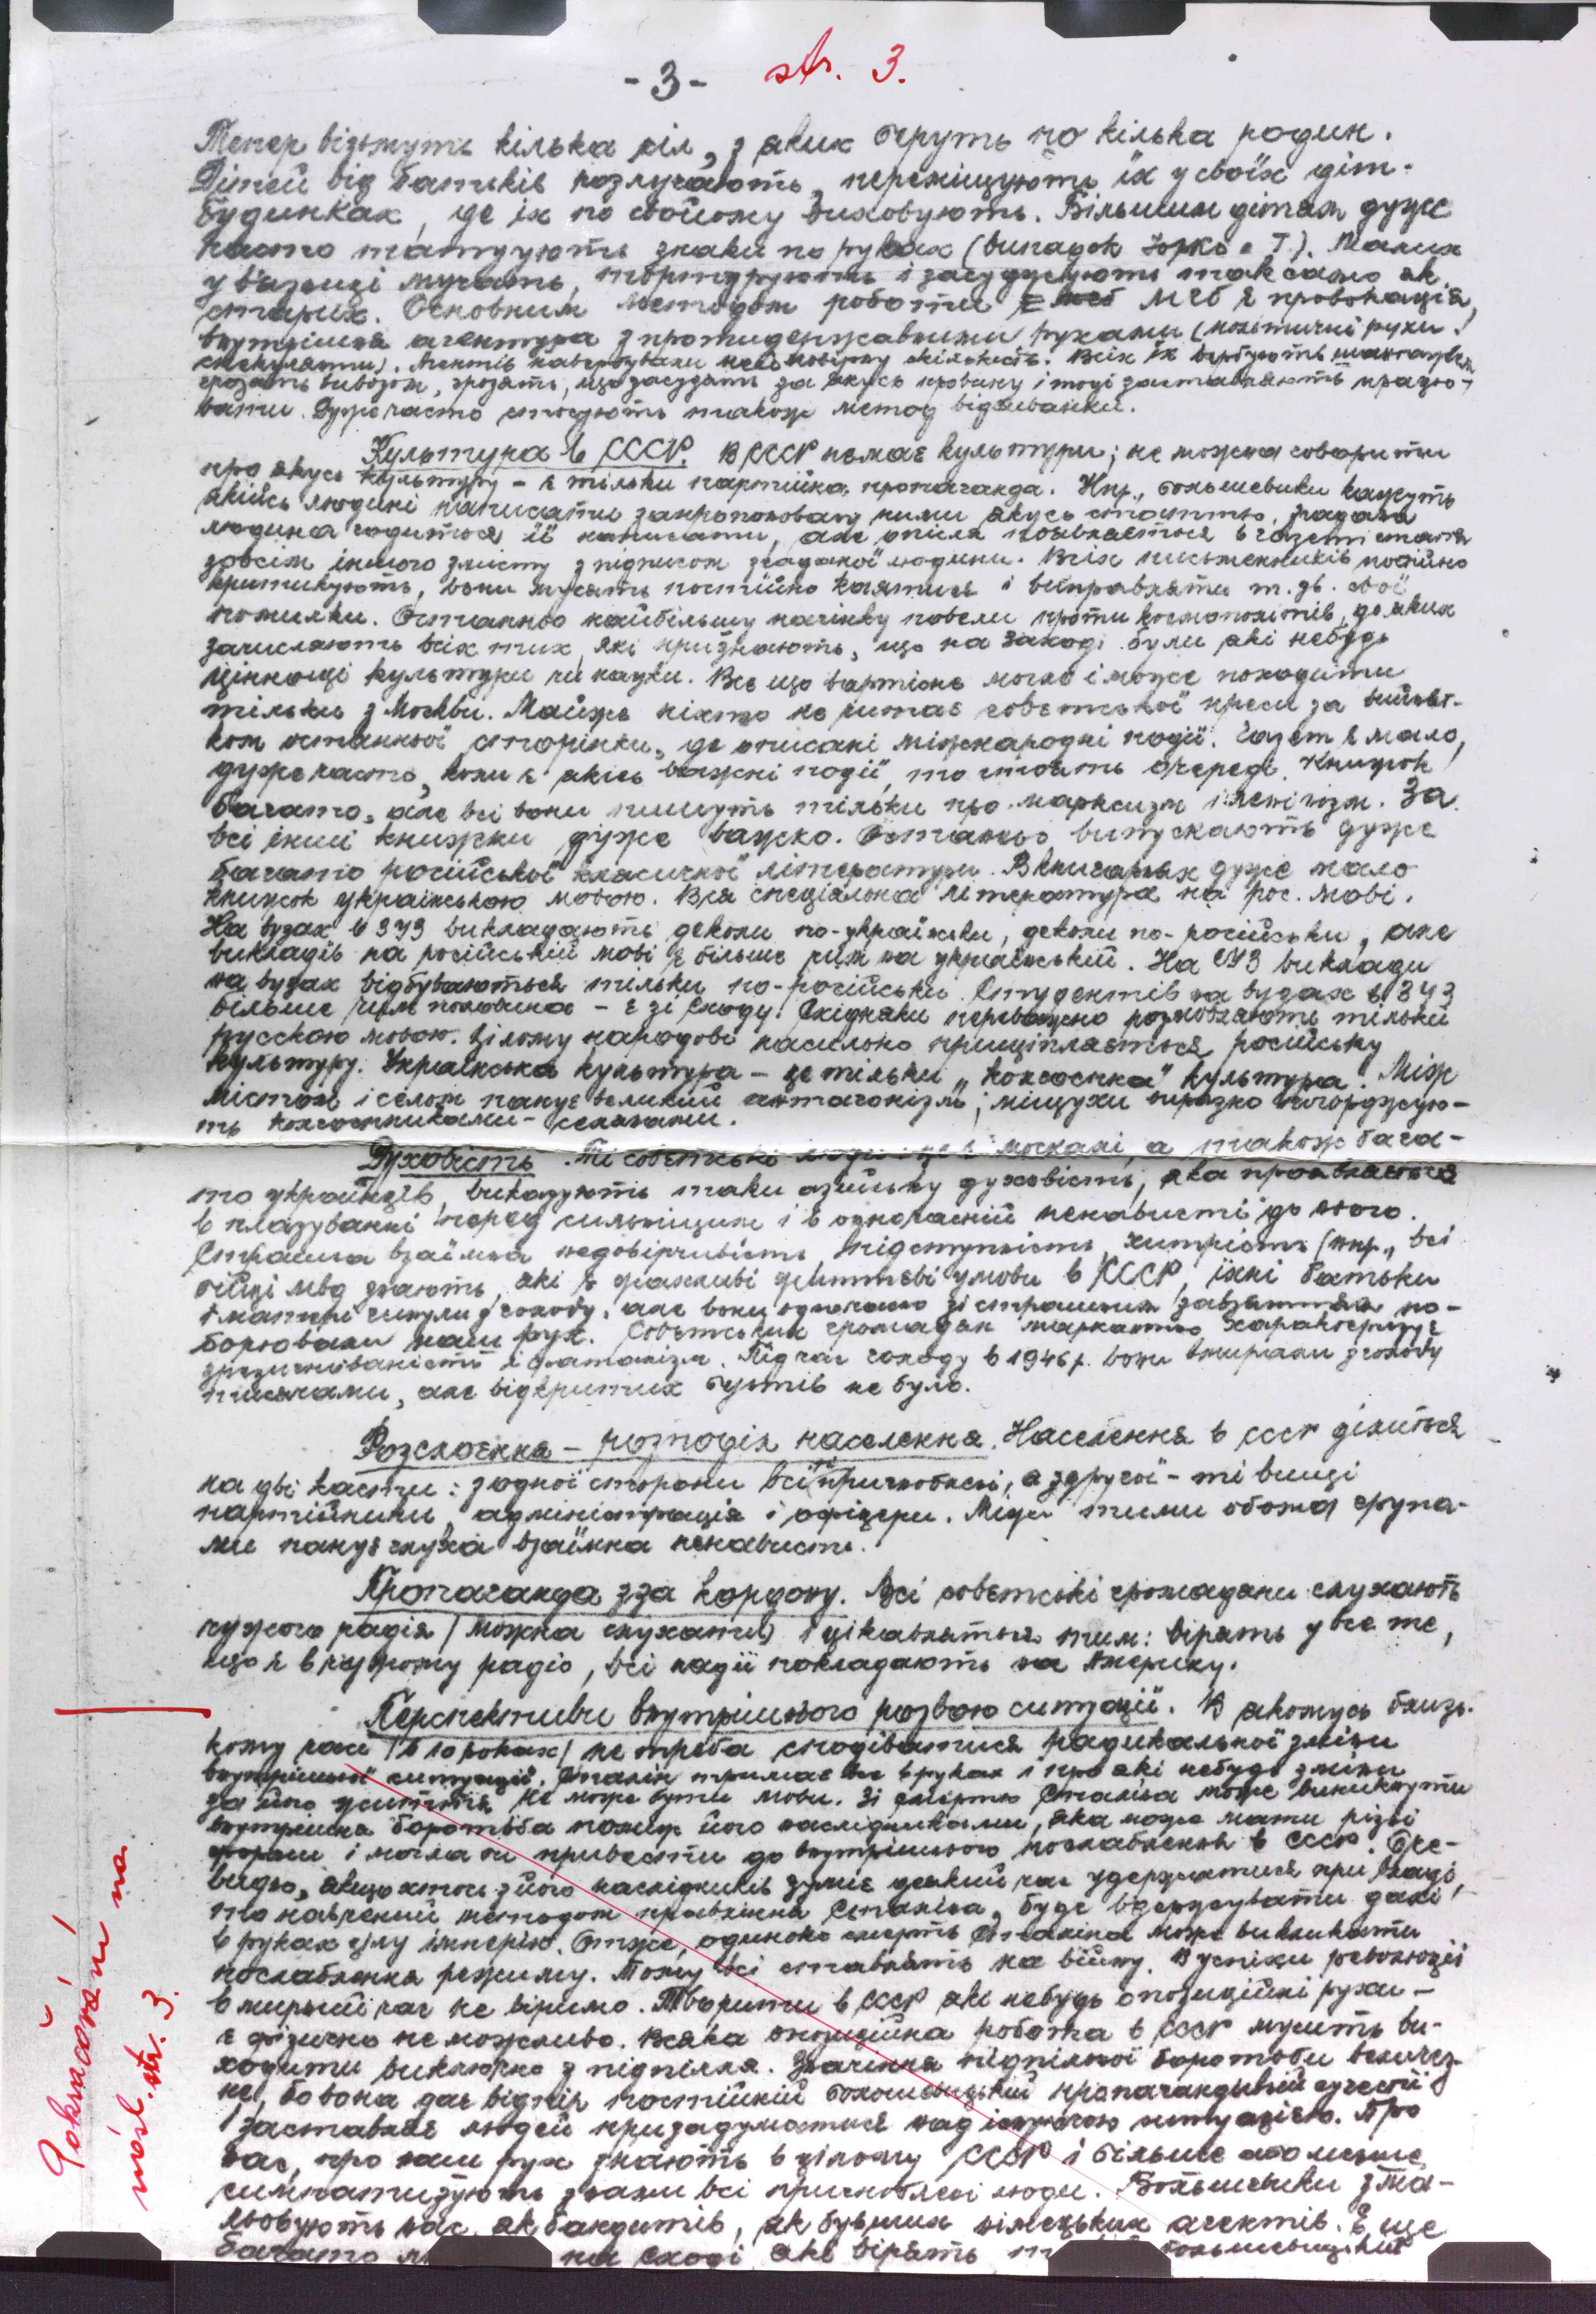 -3- str. 3.
Тепер візьмуть кілька сіл, з яких беруть по кілька родин.
Дітей від батьків розлучають, переміщують їх у своїх діт-
будинках, де їх по своїому виховують. Більшим дітям дуже
часто татуують знаки по руках (випадок Юрко Т.). Малих
у вязниці мучать, тортурують і засуджують так само як
старих. Основним методом роботи МГБ є провокація,
внутрішня агентура з протидержавними рухами (політичні рухи і
спекулянти). Агентів навербували неймовірну скількість. Всіх їх вербують шантажем,
грозять вивозом, грозять, що засудять за якусь провину і тоді заставляють працю-
вати. Дуже часто стосують також метод відбиванки.
Культура в СССР. В СССР немає культури; не можна говорити
про якусь культуру – є тільки партійна пропаганда. Нпр., большевики кажуть
якійсь людині написати запропоновану ними якусь статтю, згадана
людина годиться її написати, але опісля появляється в газеті стаття
зовсім іншого змісту з підписом згаданої людини. Всіх письменників постійно
критикують, вони мусять постійно каятися і виправляти т. зв. свої
помилки. Останньо найбільшу нагінку повели проти космополітів, до яких
зачисляють всіх тих, які признають, що на заході були які небудь
цінності культури чи науки. Все що вартісне могло і може походити
тільки з Москви. Майже ніхто не читає совєтської преси за вийнят-
ком останньої сторінки, де описані міжнародні події. Газет є мало,
дуже часто, коли є якісь важні події, то стоять очереді. Книжок
багато, але всі вони пишуть тільки про марксизм і ленінізм. За
всі інші книжки дуже важко. Останньо випускають дуже
багато російської класичної літератури. В книгарнях дуже мало
книжок українською мовою. Вся спеціяльна література на рос. мові.
На вузах в ЗУЗ викладають деколи по-українськи, деколи по-російськи, але
викладів на російській мові є більше чим на українській. На СУЗ виклади
на вузах відбуваються тільки по-російськи. Студентів на вузах в ЗУЗ
більше чим половина – є зі Сходу. Східняки переважно розмовляють тільки
русскою мовою. Цілому народові насильно прищіпляється російську
культуру. Українська культура – це тільки „колхосника" культура. Між
містом і селом панує великий антагонізм; міщухи виразно погорджую-
ть колгосниками-селянами.
Духовість. Ті совєтські люди це є москалі, а також бага-
то українців, виказують таки азійську духовість, яка проявляється
в плазуванні перед сильнішим і в одночасній ненависті до нього.
Страшна взаїмна недовірчивість, підступність, хитрість (нпр., всі
бійці мвд знають, які є жахливі життєві умови в СССР, їхні батьки
і матері гинули з голоду, але вони одночасно зі страшним завзяттям по-
борювали наш рух. Совєтських громадян маркантно характеризує
зрезигнованість і фаталізм. Під час голоду в 1946 р. вони вмирали з голоду
тисячами, але відкритих бунтів не було.
Розслоєння – розподіл населення. Населення в СССР ділиться
на дві касти: з одної сторони всі ті пригноблені, а з другої – ті вищі
партійники, адміністрація і офіцери. Між тими обома група-
ми панує глуха взаїмна ненависть.
Пропаганда зза кордону. Всі совєтські громадяни слухають
чужого радія (можна слухати) і цікавляться тим: вірять у все те,
що є в чужому радіо, всі надії покладають на Америку.
Перспективи внутрішнього розвою ситуації. В якомусь близь-
кому часі /в 10 роках/ не треба сподіватися радикальної зміни
внутрішньої ситуації. Сталін тримає все в руках і про які небудь зміни
за його життя не може бути мови. Зі смертю Сталіна може виникнути
внутрішня боротьба поміж його наслідниками, яка може мати різні
форми і могла би привести до внутрішнього послаблення в СССР. Оче-
видно, якщо хтось з його наслідників зуміє деякий час удержатися при владі,
то навчений методом правління Сталіна, буде вдержувати далі
в руках цілу імперію. Отже, одиноко смерть Сталіна може викликати
послаблення режиму. Тому всі ставлять на війну. В успіхи революції
в мирний час не віримо. Творити в СССР які небудь опозиційні рухи –
є фізично неможливо. Всяка опозиційна робота в СССР мусить ви-
ходити виключно з підпілля. Значення підпільної боротьби величез-
не, бо вона дає відпір постійній большевицькій пропагандивній
і заставляє людей призадуматися над існуючою ситуацією. Про
нас, про наш рух знають в цілому СССР і більше або менше
симпатизують з нами всі пригноблені люди. Большевики зма-
льовують нас як бандитів, як бувших німецьких агентів. Є ще
багато на сході, які вірять большевицькій
Pokračování na
násl. str. 3.